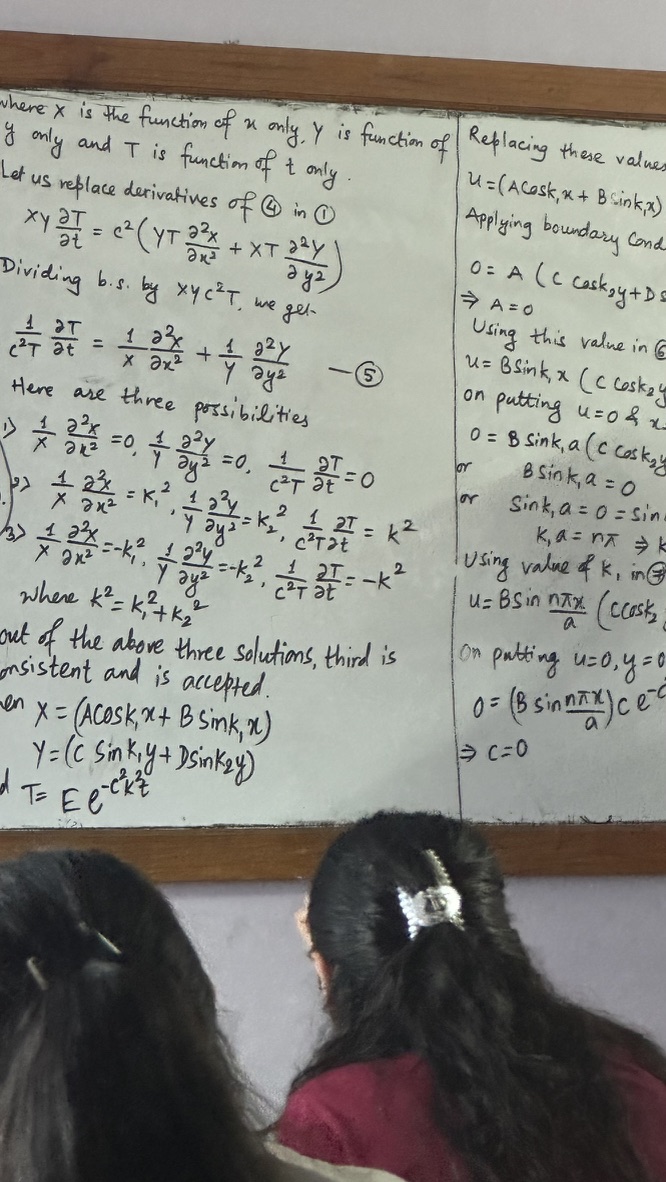 where X is the function of x only, Y is function of
y only and T is function of t only.
Let us replace derivatives of ④ in ①
XY ∂T/∂t = c² (YT ∂²X/∂x² + XT ∂²Y/∂y²)
Dividing b.s. by XYC²T, we get-
1/c²T ∂T/∂t = 1/X ∂²X/∂x² + 1/Y ∂²Y/∂y² — ⑤
Here are three possibilities
1) 1/X ∂²X/∂x² = 0, 1/Y ∂²Y/∂y² = 0, 1/c²T ∂T/∂t = 0
2) 1/X ∂²X/∂x² = K₁², 1/Y ∂²Y/∂y² = K₂², 1/c²T ∂T/∂t = K²
3) 1/X ∂²X/∂x² = -K₁², 1/Y ∂²Y/∂y² = -K₂², 1/c²T ∂T/∂t = -K²
where K² = K₁² + K₂²
out of the above three solutions, third is
onsistent and is accepted.
en X = (A cosk₁x + B sink₁x)
Y = (C sink₁y + D sink₂y)
d T = E e^-c²k²t
Replacing these values
u = (A cosk₁x + B sink₁x)
Applying boundary Cond
0 = A (C cosk₂y + D s
⇒ A = 0
Using this value in ⑥
u = B sink₁x (C cosk₂y
on putting u = 0 & x
0 = B sink₁a (C cosk₂y
or B sink₁a = 0
or sink₁a = 0 = sin
K₁a = nπ ⇒ K
Using value of K₁ in ⑦
u = B sin nπx/a (C cosk₂
On putting u = 0, y = 0
0 = (B sin nπx/a) C e^-c
⇒ C = 0